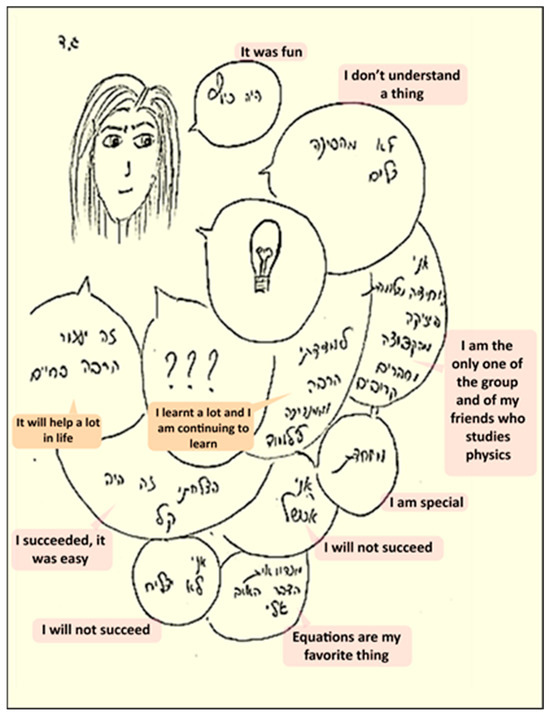 ג.ד
It was fun
היה כיף
I don't understand
a thing
לא מבינה
כלום
אני
יחידה שלומדת
פיזיקה
מהקבוצה
וחברים
קרובים
I am the
only one of
the group
and of my
friends who
studies
physics
זה יעזור
הרבה בחיים
It will help a lot
in life
???
למדתי
הרבה
וממשיכה
ללמוד
I learnt a lot and I
am continuing to
learn
מיוחדת
I am special
הצלחתי זה היה
קל
I succeeded, it
was easy
אני
אכשל
I will not succeed
אני
לא אצליח
I will not succeed
הדבר
Equations are my
favorite thing